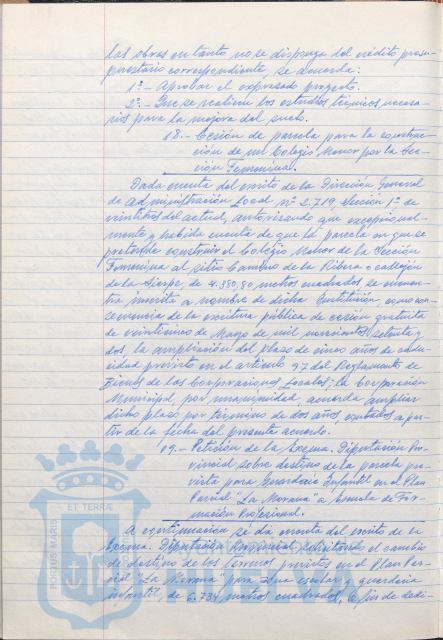 las obras en tanto no se disponga del crédito presu-
puestario correspondiente, se acuerda:
1º.- Aprobar el expresado proyecto.
2º.- Que se realicen los estudios técnicos necesa-
rios para la mejora del suelo.
18.- Cesión de parcela para la construc-
ción de un Colegio Menor por la Sec-
ción Femenina.
Dada cuenta del escrito de la Dirección General
de Administración Local nº 2.719, Sección 1ª de
veintiños del actual, autorizando que excepcional-
mente y habida cuenta de que la parcela en que se
pretende construir el Colegio Menor de la Sección
Femenina al sitio Camino de la Ribera o callejón
de la Sierpe, de 4.980,80 metros cuadrados se encuen-
tra inscrita a nombre de dicha Institución como con-
secuencia de la escritura pública de cesión gratuita
de veinticinco de Mayo de mil novecientos setenta y
dos, la ampliación del plazo de cinco años de cadu-
cidad previsto en el artículo 97 del Reglamento de
Bienes de las Corporaciones Locales; la Corporación
Municipal, por unanimidad, acuerda ampliar
dicho plazo por término de dos años, contados a par-
tir de la fecha del presente acuerdo.
19.- Petición de la Excma. Diputación Pro-
vincial sobre destino de la parcela pre-
vista para Guardería Infantil en el Plan
Parcial "La Morana" a Escuela de For-
mación Profesional.
A continuación se da cuenta del escrito de la
Excma. Diputación Provincial, solicitando el cambio
de destino de los terrenos previstos en el Plan Par-
cial "La Morana" para zona escolar y guardería
infantil, de 6.734 metros cuadrados, a fin de dedi-
PORTUS MARIS ET TERRAE